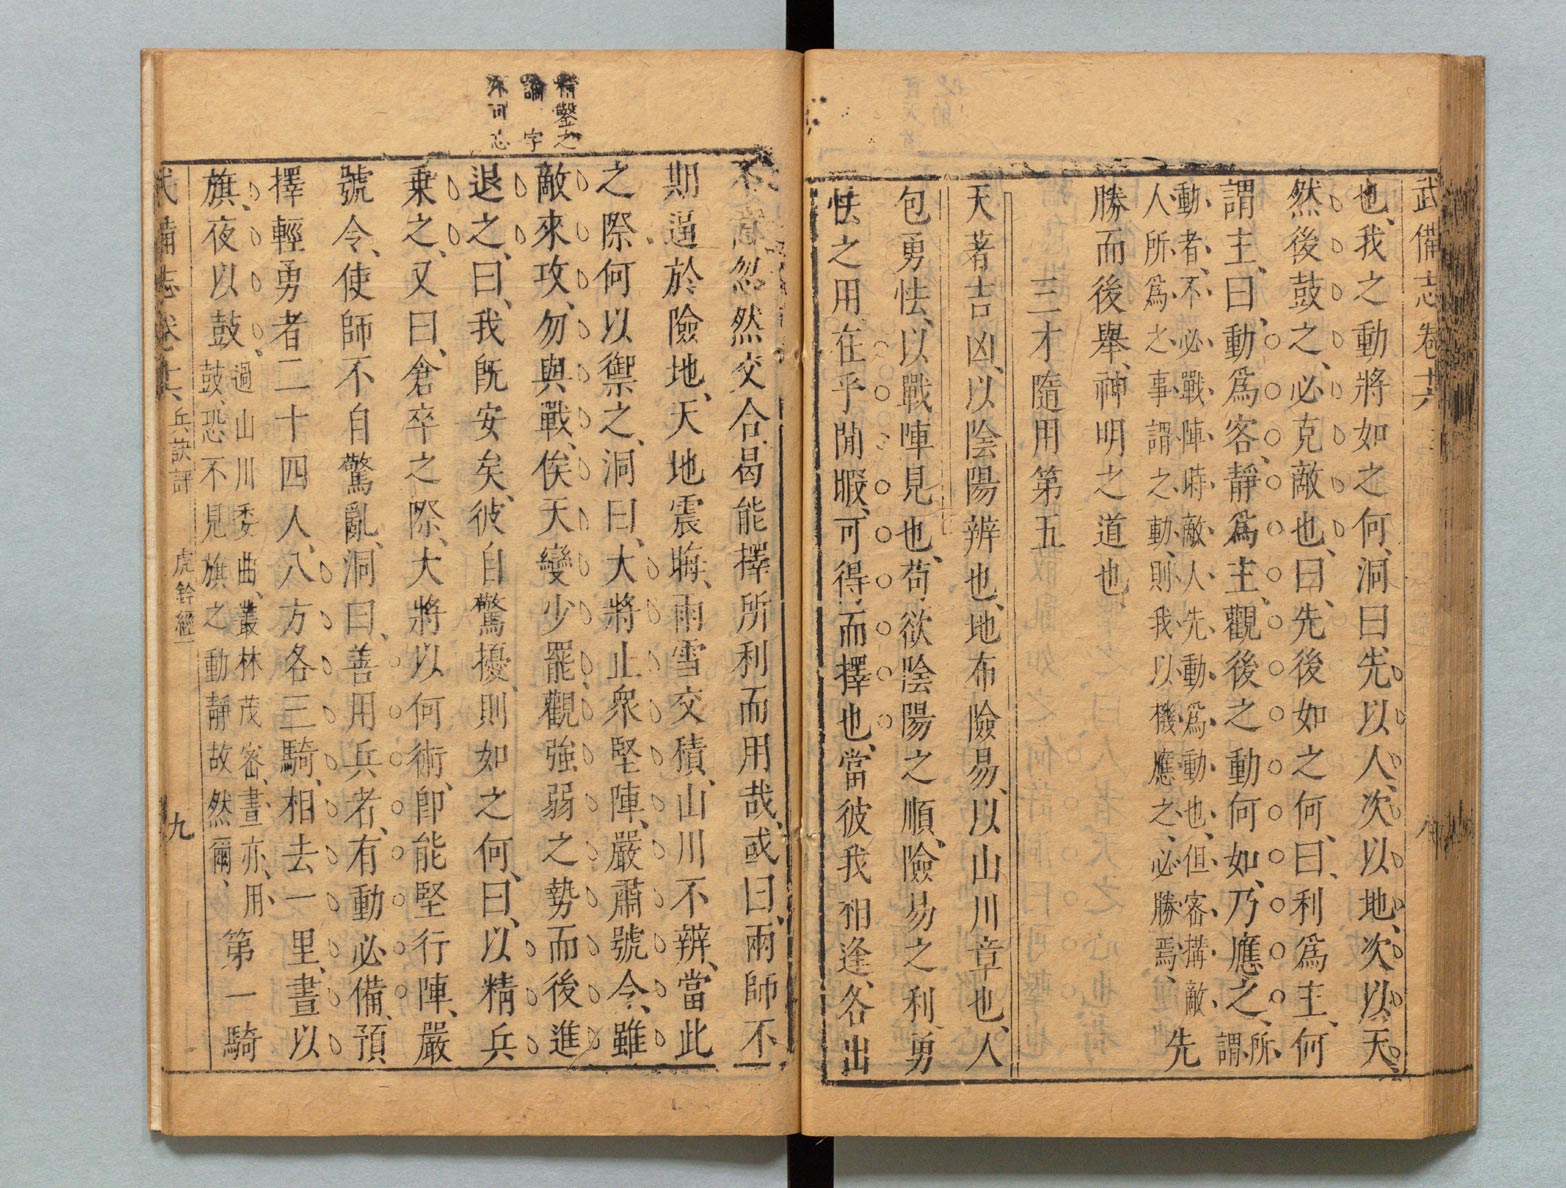 武備志卷十六
也、我之動將如之何、洞曰、先以人、次以地、次以天、
然後鼓之、必克敵也、曰、先後如之何、曰、利爲主、何
謂主、曰、動爲客、靜爲主、觀後之動何如、乃應之、所謂
動者、不必戰陣、時敵人先動、爲動也、但密搆敵
人所爲之事、謂之動、則我以機應之、必勝焉、先
勝而後舉、神明之道也
三才隨用第五
天著吉凶、以陰陽辨也、地布險易、以山川章也、人
包勇怯、以戰陣見也、苟欲陰陽之順、險易之利、勇
怯之用、在乎閒暇、可得而擇也、當彼我相逢、各出
精鑿之
論字
不可忘
不意、忽然交合、曷能擇所利而用哉、或曰、兩師不
期、逼於險地、天地震晦、雨雪交積、山川不辨、當此
之際、何以禦之、洞曰、大將止衆堅陣、嚴肅號令、雖
敵來攻、勿與戰、俟天變少罷、觀強弱之勢、而後進
退之、曰、我旣安矣、彼自驚擾、則如之何、曰、以精兵
乗之、又曰、倉卒之際、大將以何術、卽能堅行陣、嚴
號令、使師不自驚亂、洞曰、善用兵者、有動必備、預
擇輕勇者二十四人、八方各三騎、相去一里、晝以
旗、夜以鼓、過山川委曲、叢林茂密、晝亦用
鼓、恐不見旗之動靜故然爾、第一騎
武備志卷十六 兵訣評 虎鈐經一 九